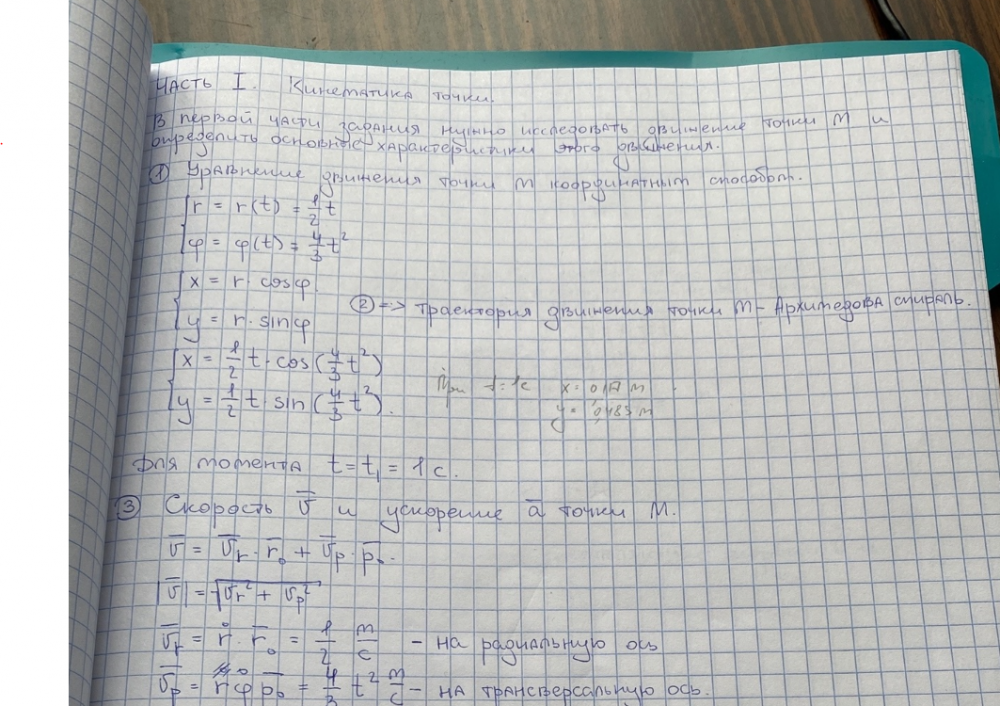 Часть I. Кинематика точки.
В первой части задания нужно исследовать движение точки M и
определить основные характеристики этого движения.
① Уравнение движения точки M координатным способом.
{r = r(t) = 1/2 t
{φ = φ(t) = 4/3 t²
{x = r · cosφ.
② => траектория движения точки M - Архимедова спираль.
{y = r · sinφ
{x = 1/2 t · cos(4/3 t²)
{y = 1/2 t · sin(4/3 t²).
При t = 1c x = 0,117 м
y = 0,483 м
Для момента t = t₁ = 1c.
③ Скорость v̄ и ускорение ā точки M.
v̄ = v̄r · r̄₀ + v̄p · p̄₀.
|v̄| = √(vr² + vp²)
v̄r = ṙ · r̄₀ = 1/2 м/с – на радиальную ось
v̄p = r φ̇ p̄₀ = 4/3 t² м/с – на трансверсальную ось.